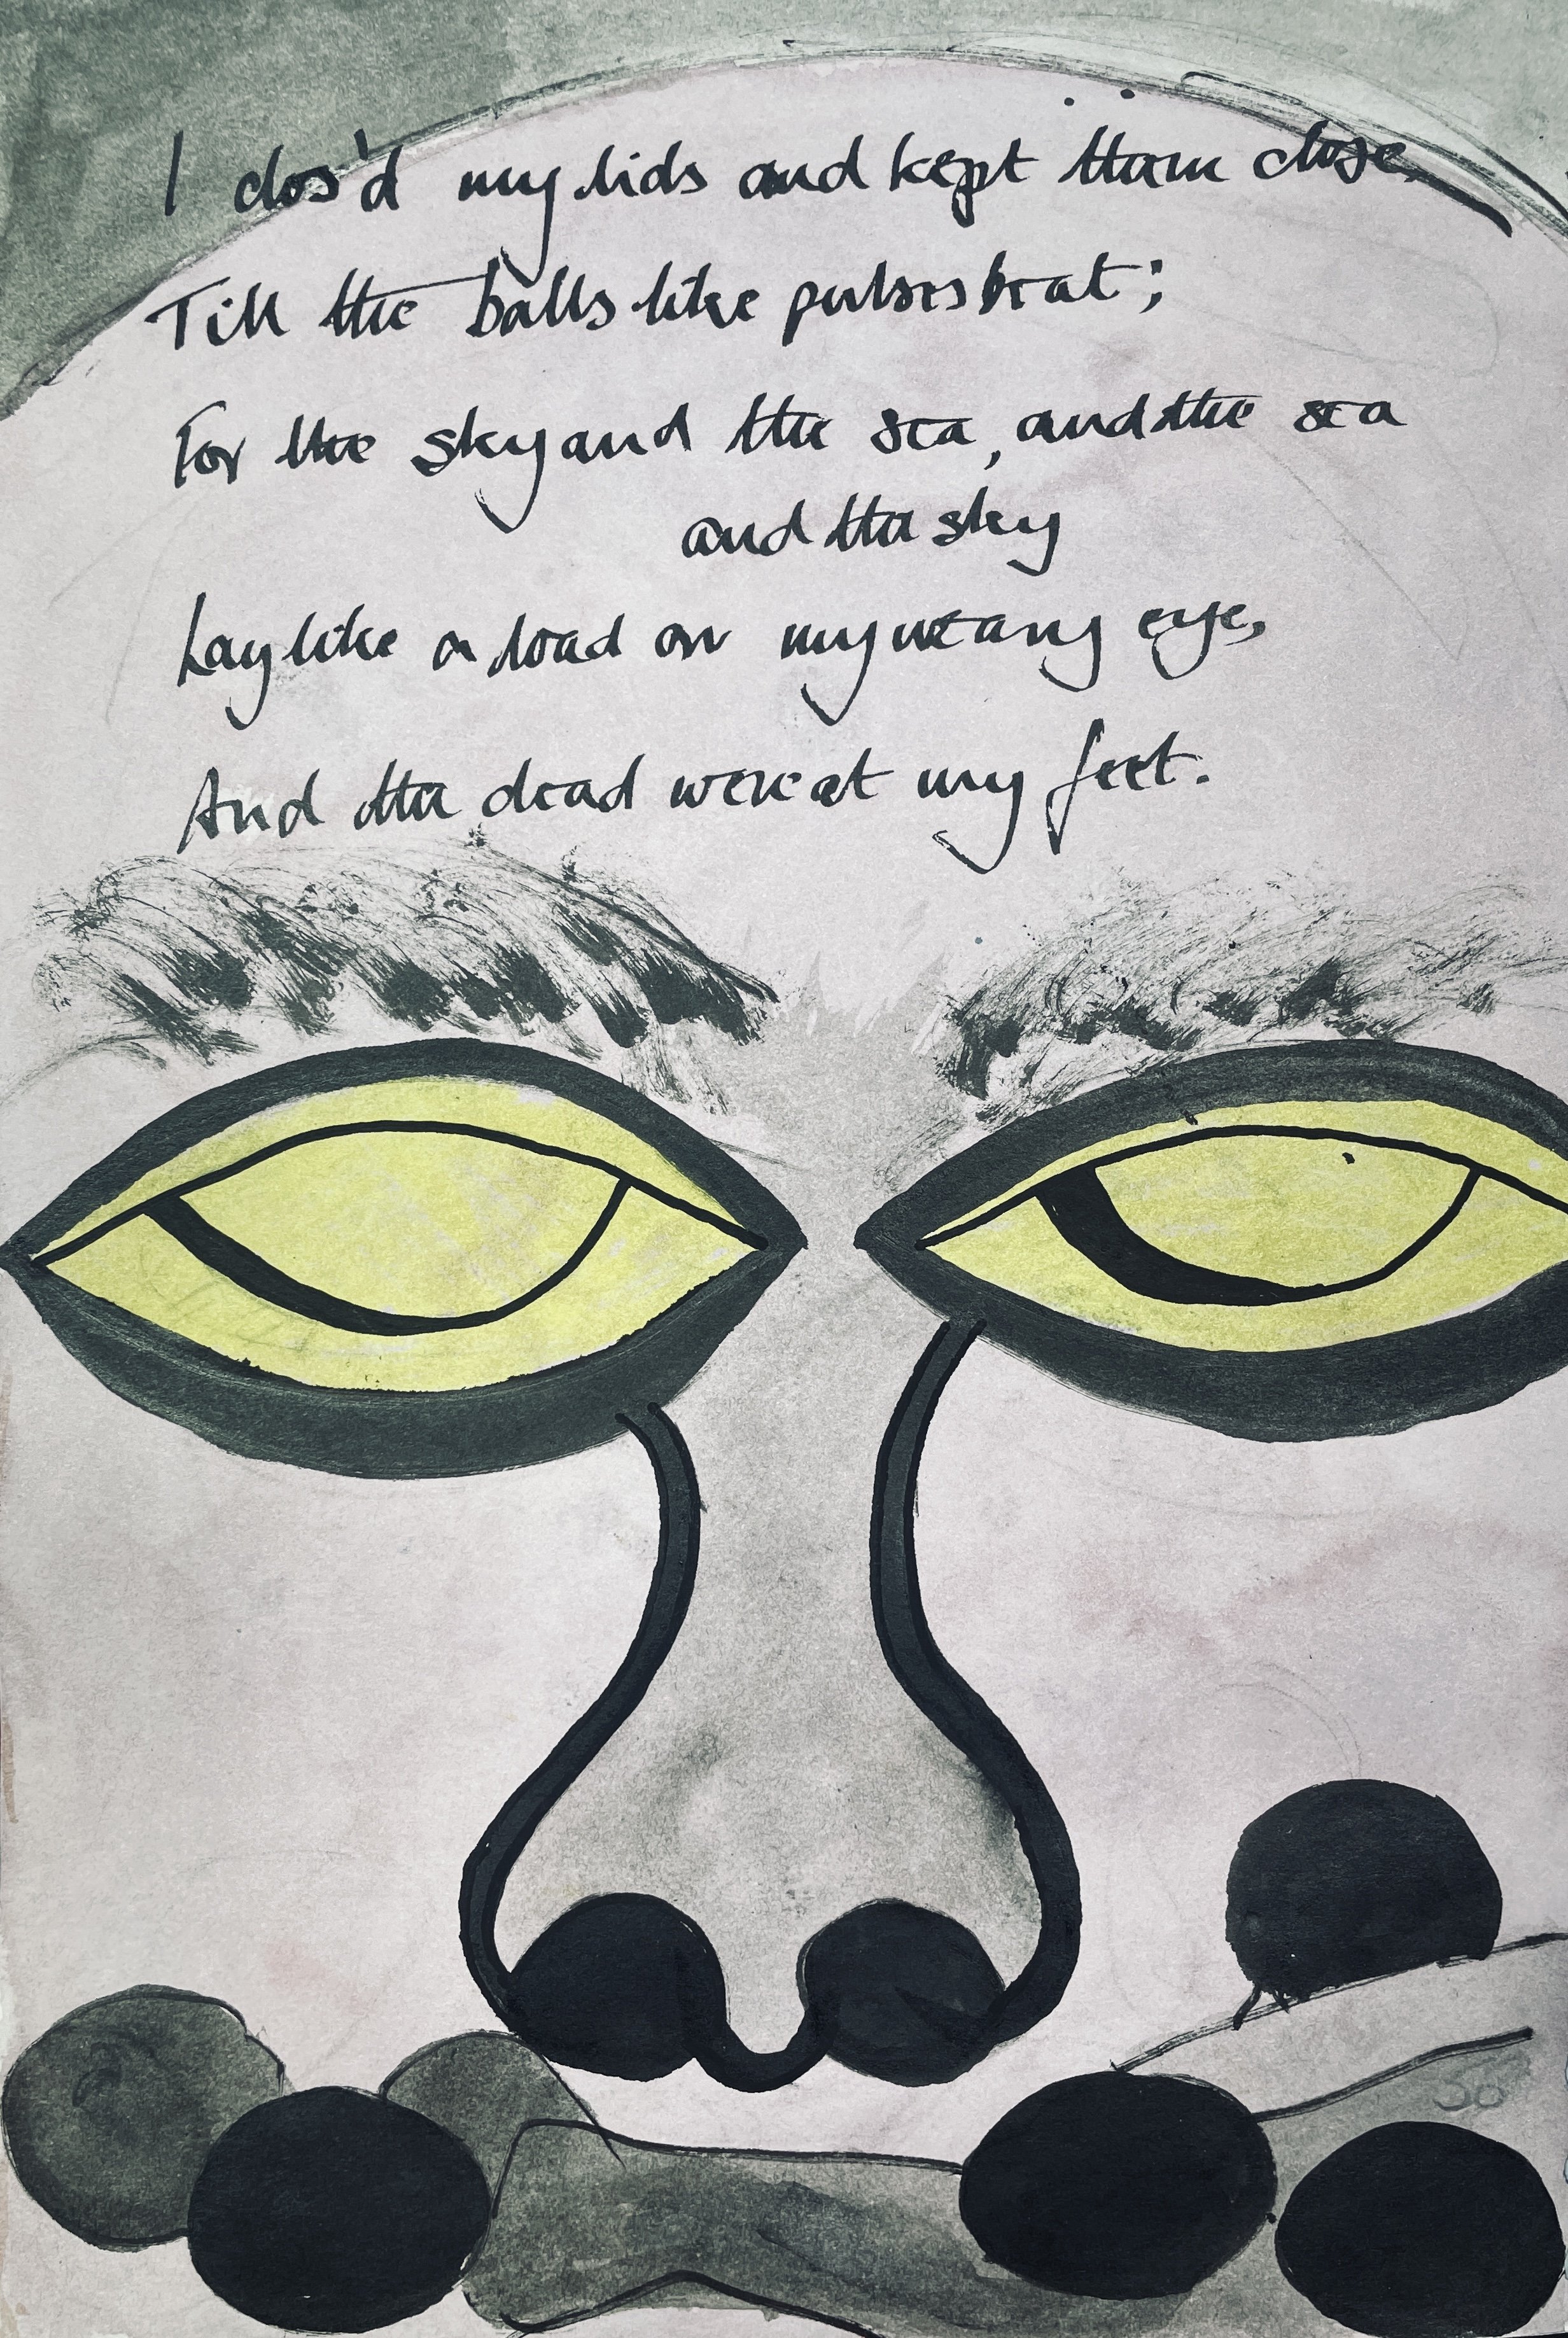 I clos'd my lids and kept them close,
Till the balls like pulses beat;
For the sky and the sea, and the sea
and the sky
Lay like a load on my weary eye,
And the dead were at my feet.